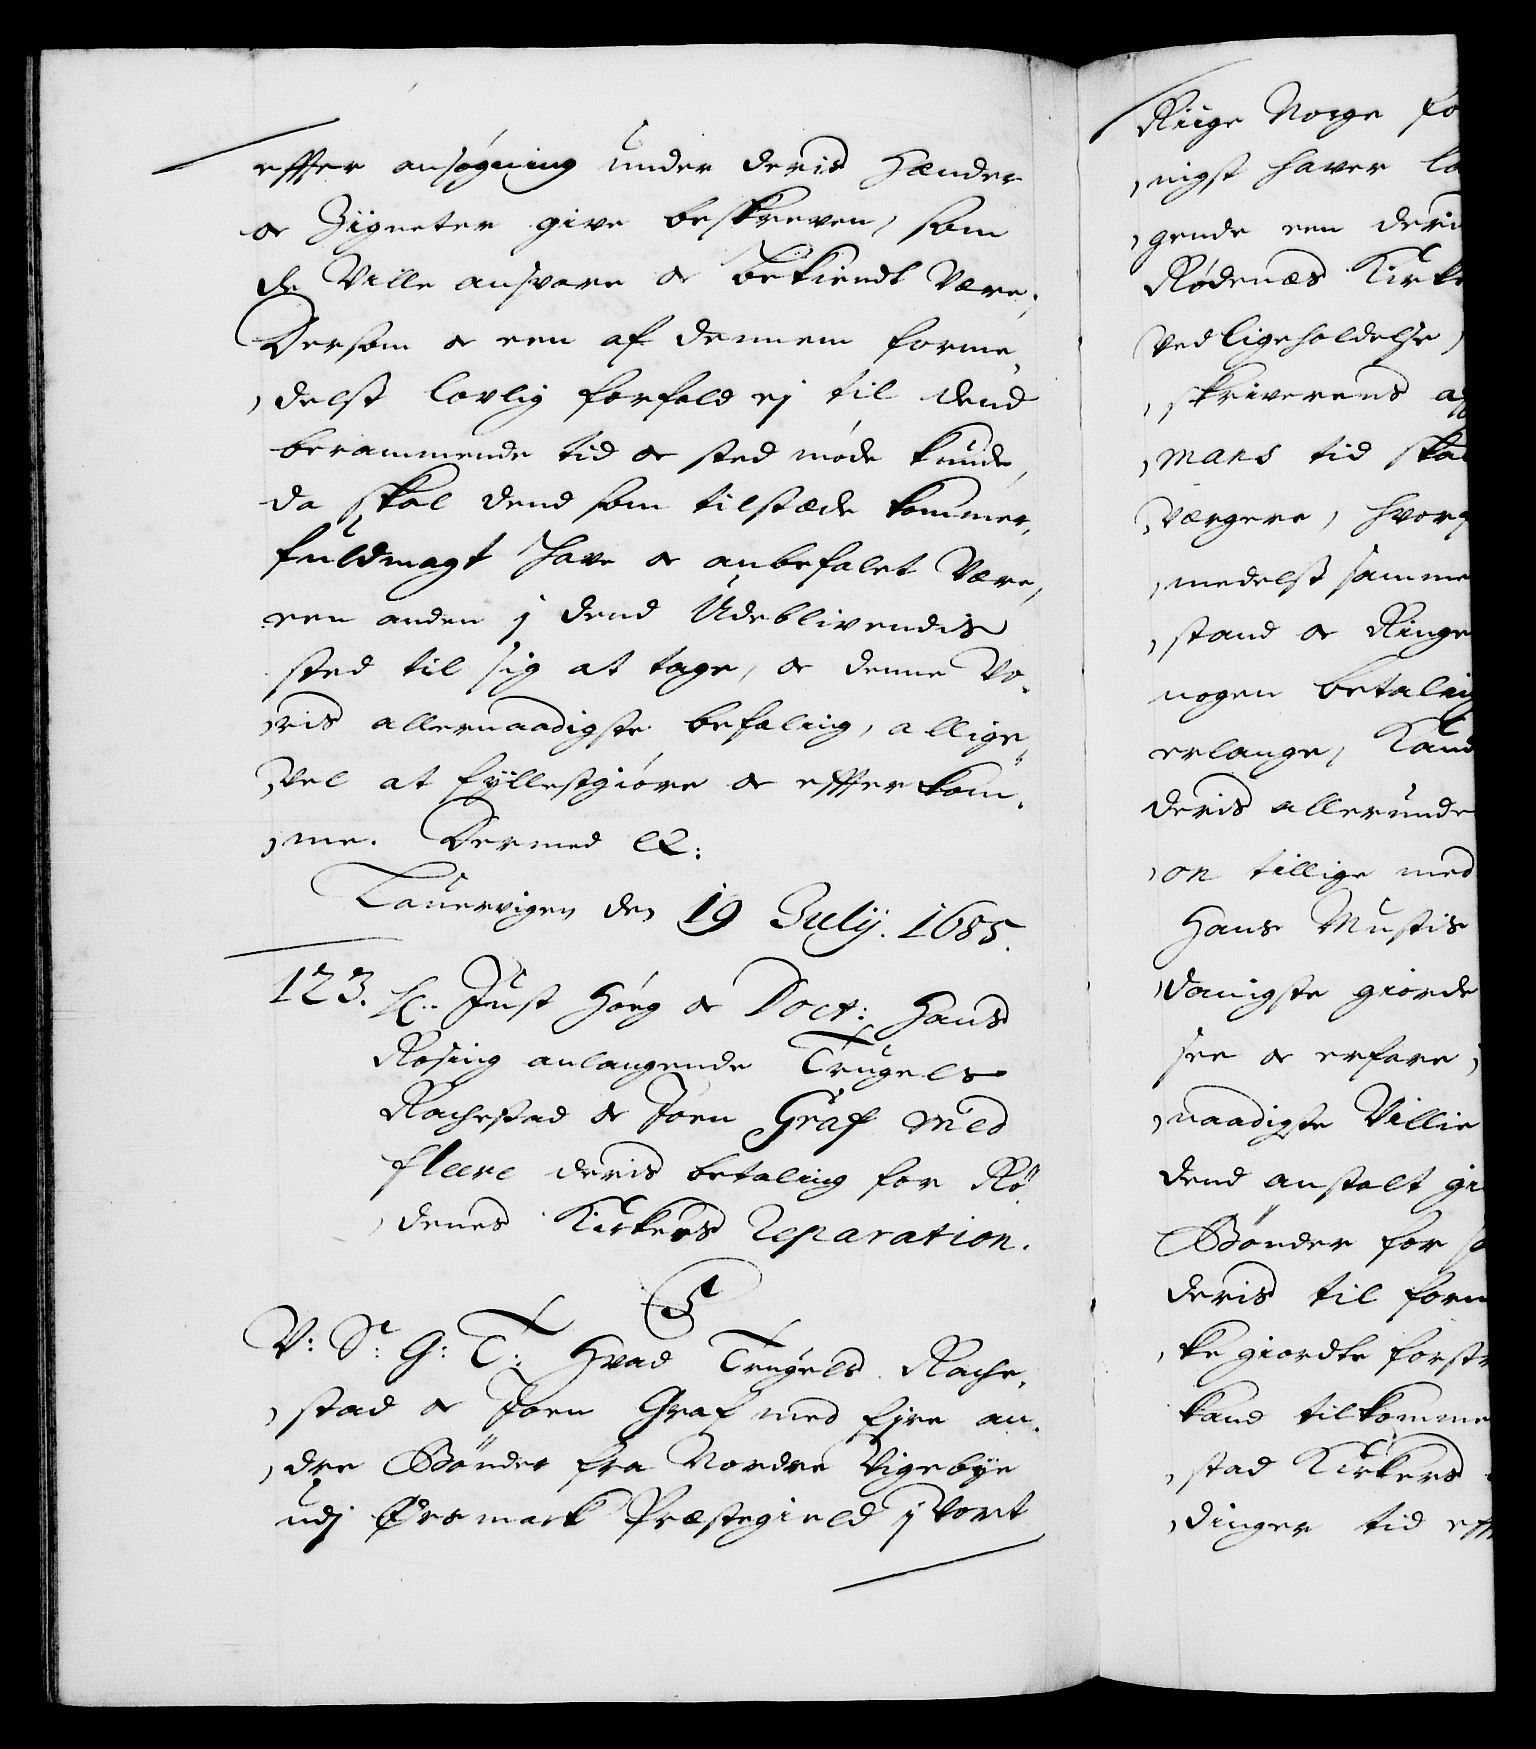 effter ansøgning under deris Hænder
oc Zigneter give beskreven, som
de Ville ansvare oc bekiendt Være;
Dersom oc een af dennem forme,
, delst lovlig forfald ej til dend
berammende tid oc sted møde kunde,
da skal dend som tilstæde kommer,
fuldmagt have oc anbefalet Være,
een anden j dend Udeblivendis
sted til sig at tage, oc denne Vo,
,ris allernaadigste befaling, allige,
,vel at fyllestgiøre oc effterkom,
,me. Dermed etc:
Lauervigen den 19 Julij. 1685.
123. Just Høeg oc Doct: Hans
Rosing anlangende Trugels
Rachestad oc Joen Graf med
fleere deris betaling for Rö
,denes Kirkers Reparation.
C5
V: S: G: T: Hvad Trugels Rache,
,stad oc Joen Graf med fire an,
,dre Bönder fra Nordre Vigebye
udj Øresmark Præstegield j Vort
Riige Norge fo
,nigst haver la
,gende een deri
Rødenæs Kirke
Vedligeholdelse,
,skriverens
,mans tid ska
,Værgere, hvor
,medelst samme
,stand oc Ringe
nogen betaling
erlange, Kand
deris allerunde
,on tillige med
Hans Mustis
,danigste giorde
see oc erfare,
,naadigste Villie
dend anstalt gi
Bönder for
deris til forn
,ke giordte forst
kand tilkomme
,stad Kirkers
,dinger tid eff